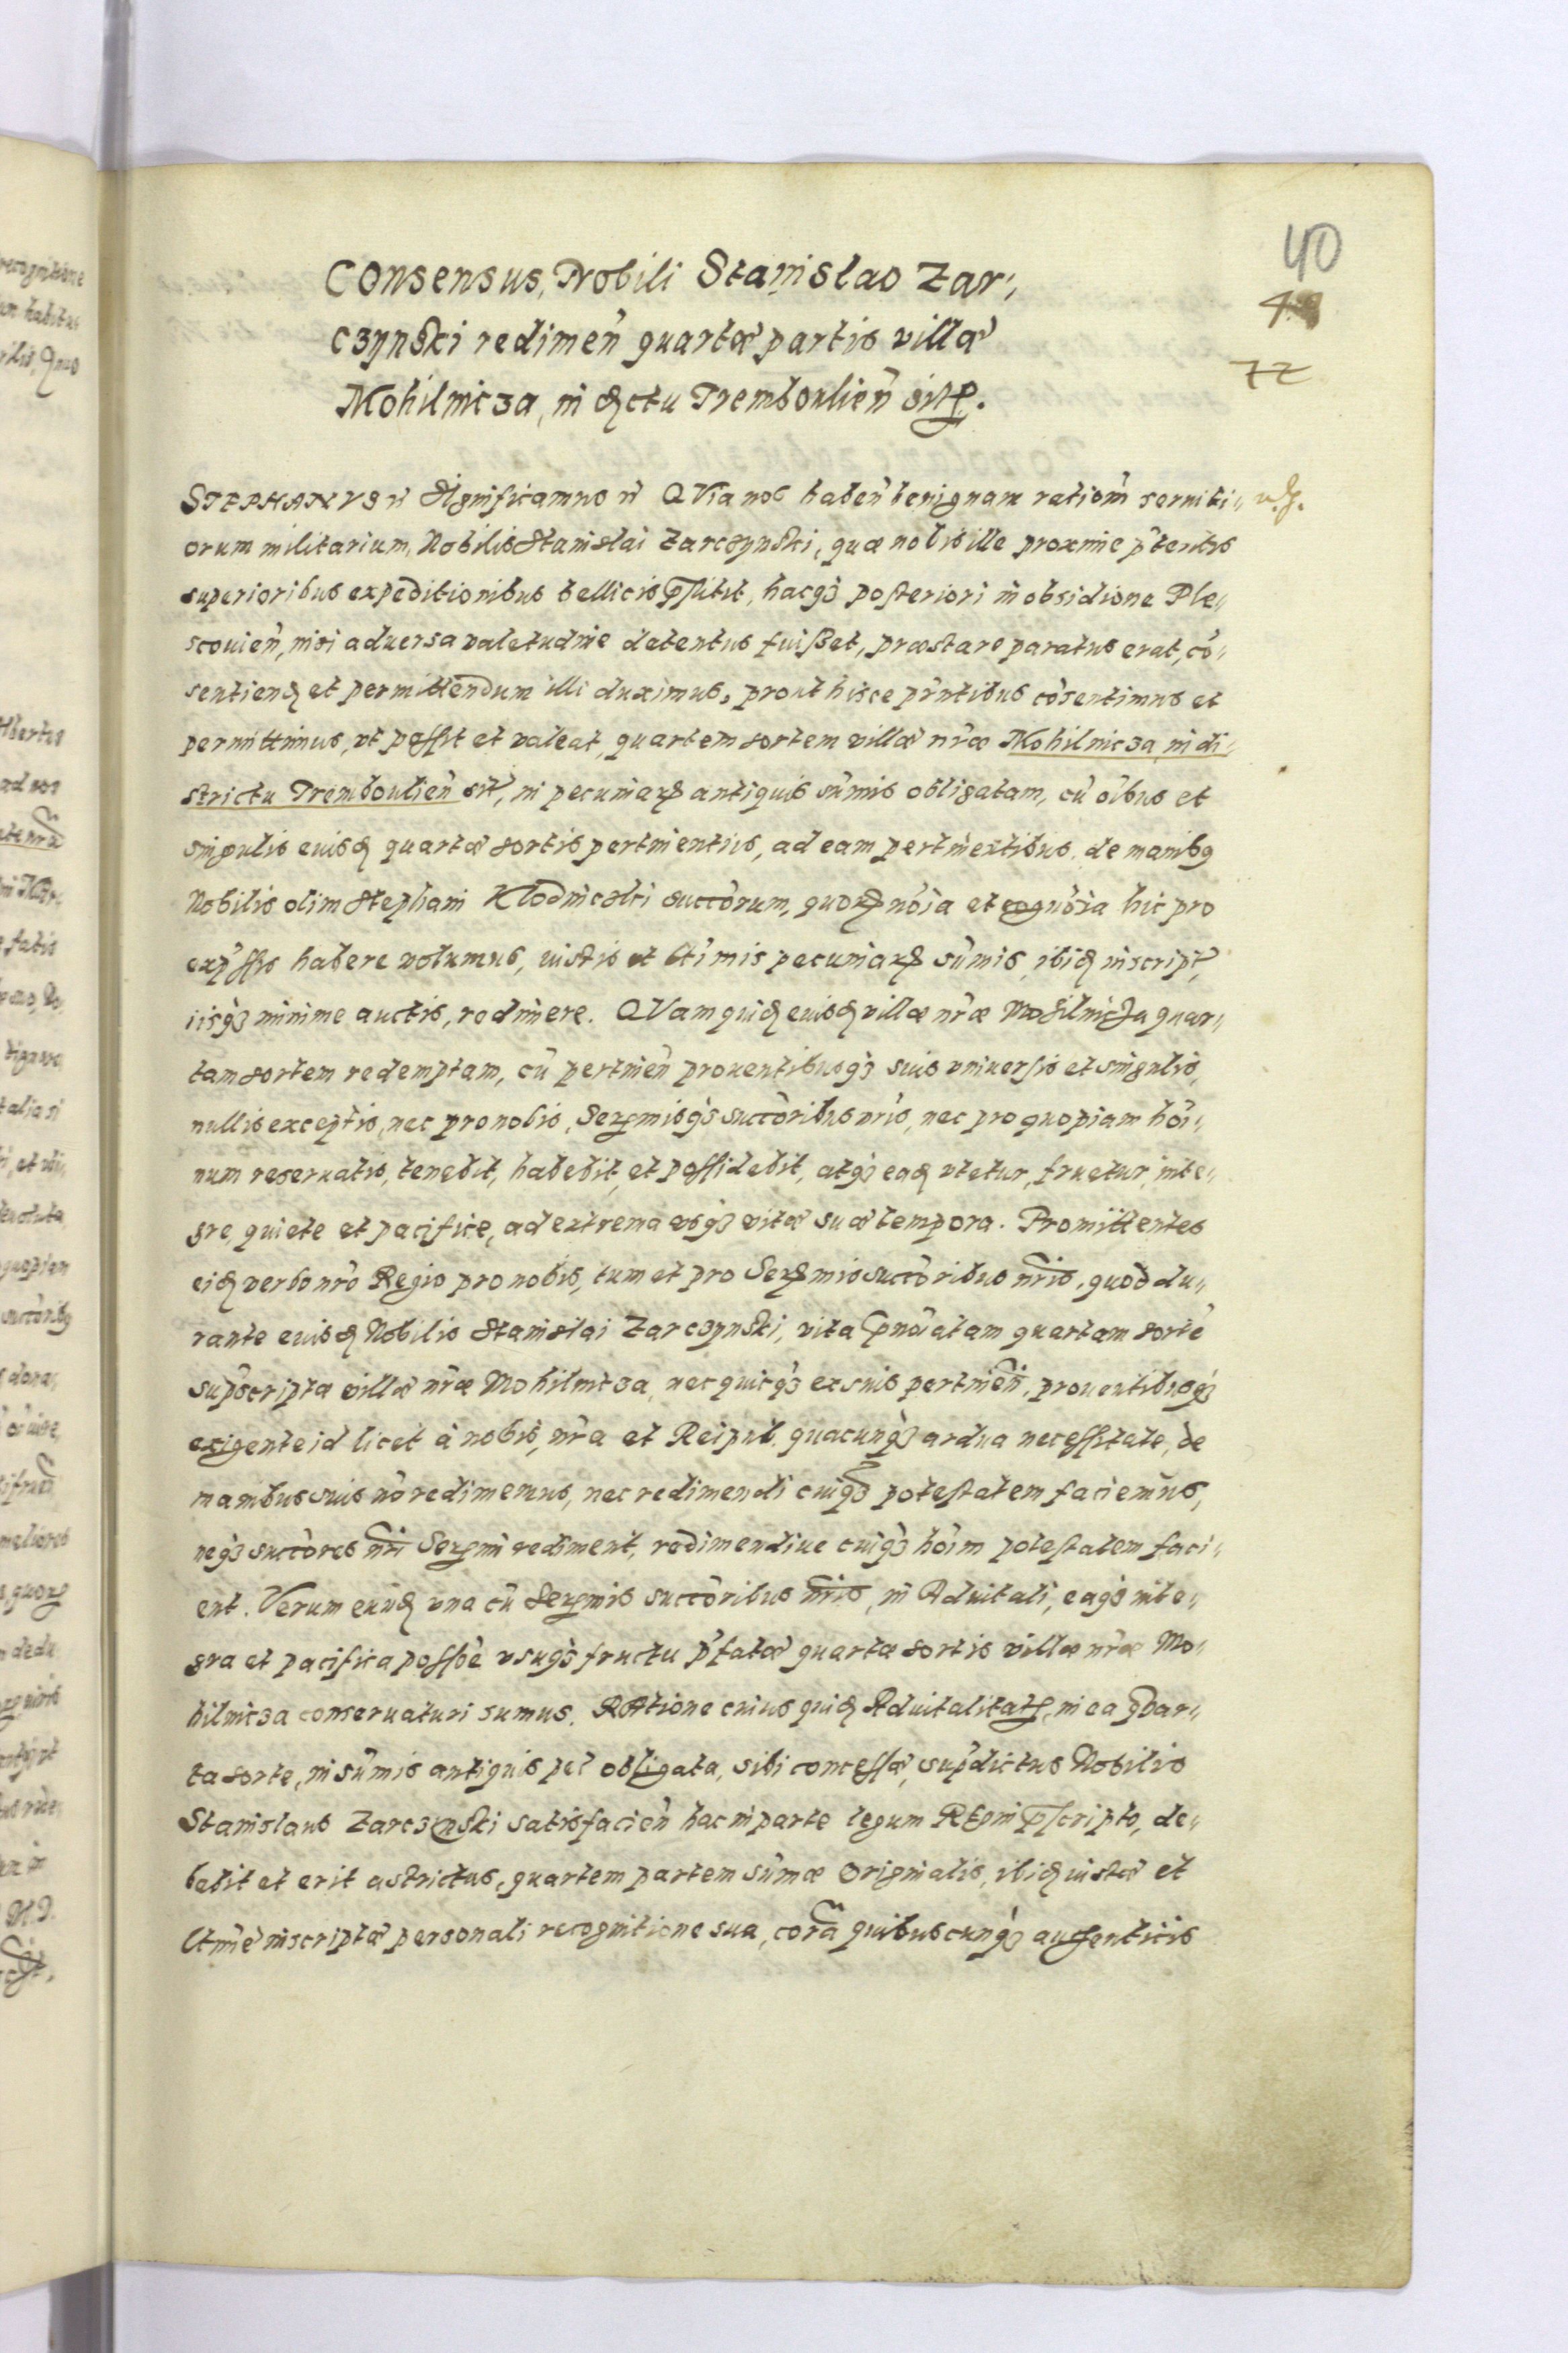 40
4
72
Consensus, Nobili Stanislao Zar,,
czynski redimen̄ quartæ partis villæ
Mohilnicza, in dictu Trembowlien̄ sitæ.
STEPHANVS n̄ Significamus n̄ QVia nos haben̄ benignam ration̄m serviti,,
orum militarium, Nobilis Stanislai Zarczynski, quæ nobis ille proxime p̄teritis
superioribus expeditionibus bellicis p̄stitit, hacq3 posteriori in obsidione Ple,,
scouien̄, nisi aduersa valetudine detentus fuißet, præstare paratus erat, cō,,
sentiend et permittendum illi duximus, prout hisce pn̄tibus cōsentimus et
permittimus, vt possit et valeat, quartem sortem villæ nr̄æ Mohilnicza, in di,,
strictu Trembowlien̄ sit̄, in pecuniarꝝ antiquis sūmis obligatam, cū oībus et
singulis eiusd quartæ sortis pertinentiis, ad eam pertinentibus, de manibꝫ
Nobilis olim Stephani Klodnicski succōrum, quorꝝ nōia et cognōia hic pro
exp̄ssis habere volumus, iustis et ltīmis pecuniarꝝ sūmis, ibid inscript̄,
iisq3 minime auctis, redimere. QVam quid eiusd villæ nr̄æ Mohilnicza quar,,
tam sortem redemptam, cū pertinen̄ prouentibusq3 suis vniuersis et singulis,
nullis exceptis, nec pro nobis, Serꝝmisq3 succōribus nrīs, nec pro quopiam hōi,,
num reseruatis, tenebit, habebit, et possidebit, atq3 ead vtetur, fruetur, inte,,
gre, quiete et pacifice, ad extrema vsq3 vitæ suæ tempora. Promittentes
eid verbo nrō Regio pro nobis, tum et pro Serꝝmis succōribus nrīs, quod du,,
rante eiusd Nobilis Stanislai Zarczynski, vita p̄nōiatam quartam sortē
sup̄scriptæ villæ nr̄æ Mohilnicza, nec quicq3 ex suis pertinen̄, prouentibusq3
exigente id licet à nobis, nr̄a et Reipub. quacunq3 ardua necessitate, de
manibus suis nō redimemus, nec redimendi cuiq3 potestatem faciemus,
neq3 succōres nr̄i Serꝝmi rediment, redimendiue cuiq3 hōim potestatem faci,,
ent. Verum eund vna cū Serꝝmis succōribus nrīs, in Aduitali, eaq3 inte,,
gra et pacifica possōe vsuq3 fructu p̄fatæ quartæ sortis villæ nr̄æ Mo,,
hilnicza conseruaturi sumus. Ratione cuius quid Aduitalitatꝭ, in ea quar,,
ta sorte, in sūmis antiquis pec̄ obligata, sibi concessæ, sup̄dictus Nobilis
Stanislaus Zarczynski satisfacien̄ hac in parte legum Regni p̄scripto, de,,
bebit et erit astrictus, quartem partem sūmæ originalis, ibid iustæ et
ltīmè inscriptæ personali recognitione sua, corā quibuscunq3 authenticis